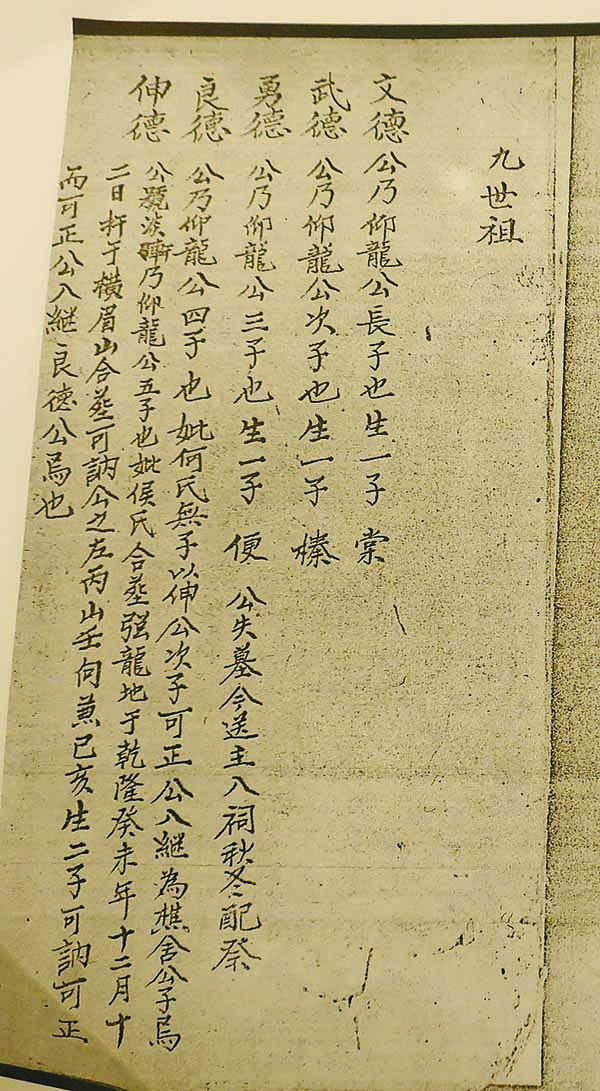 九世祖
文德 公乃仰龍公長子也生一子 棠
武德 公乃仰龍公次子也生一子 榛
勇德 公乃仰龍公三子也生一子 便 公失墓今送主入祠秋冬配祭
良德 公乃仰龍公四子也妣何氏無子以伸公次子可正公入継為樵舍公子焉
伸德 公號淡乃仰龍公五子也妣侯氏合塟强龍地于乾隆癸未年十二月十
二日扦于橫眉山合塟可訥公之左丙山壬向兼已亥生二子可訥可正
而可正公入継良德公焉也